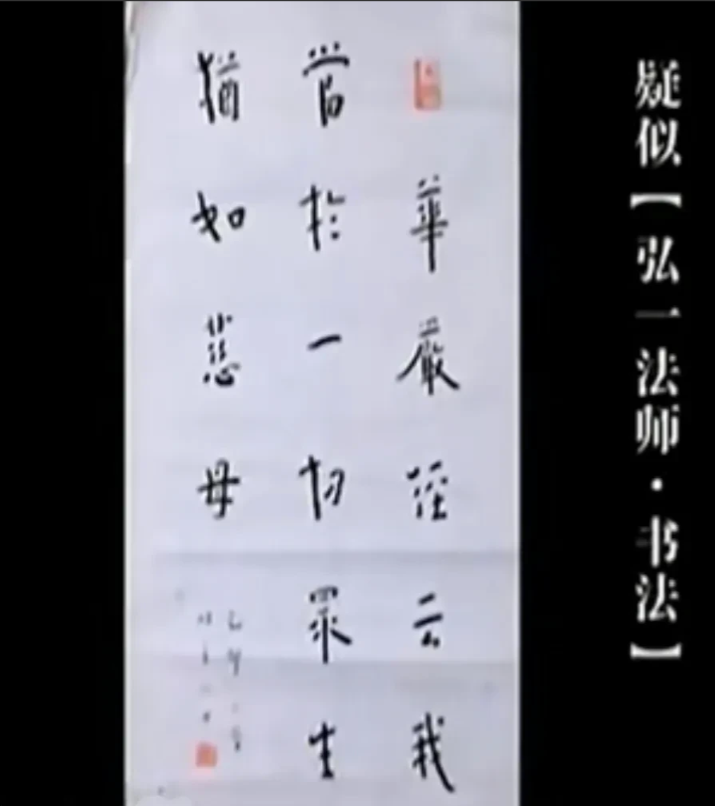 疑似【弘一法师·书法】
華嚴經云我
當於一切眾生
猶如慈母